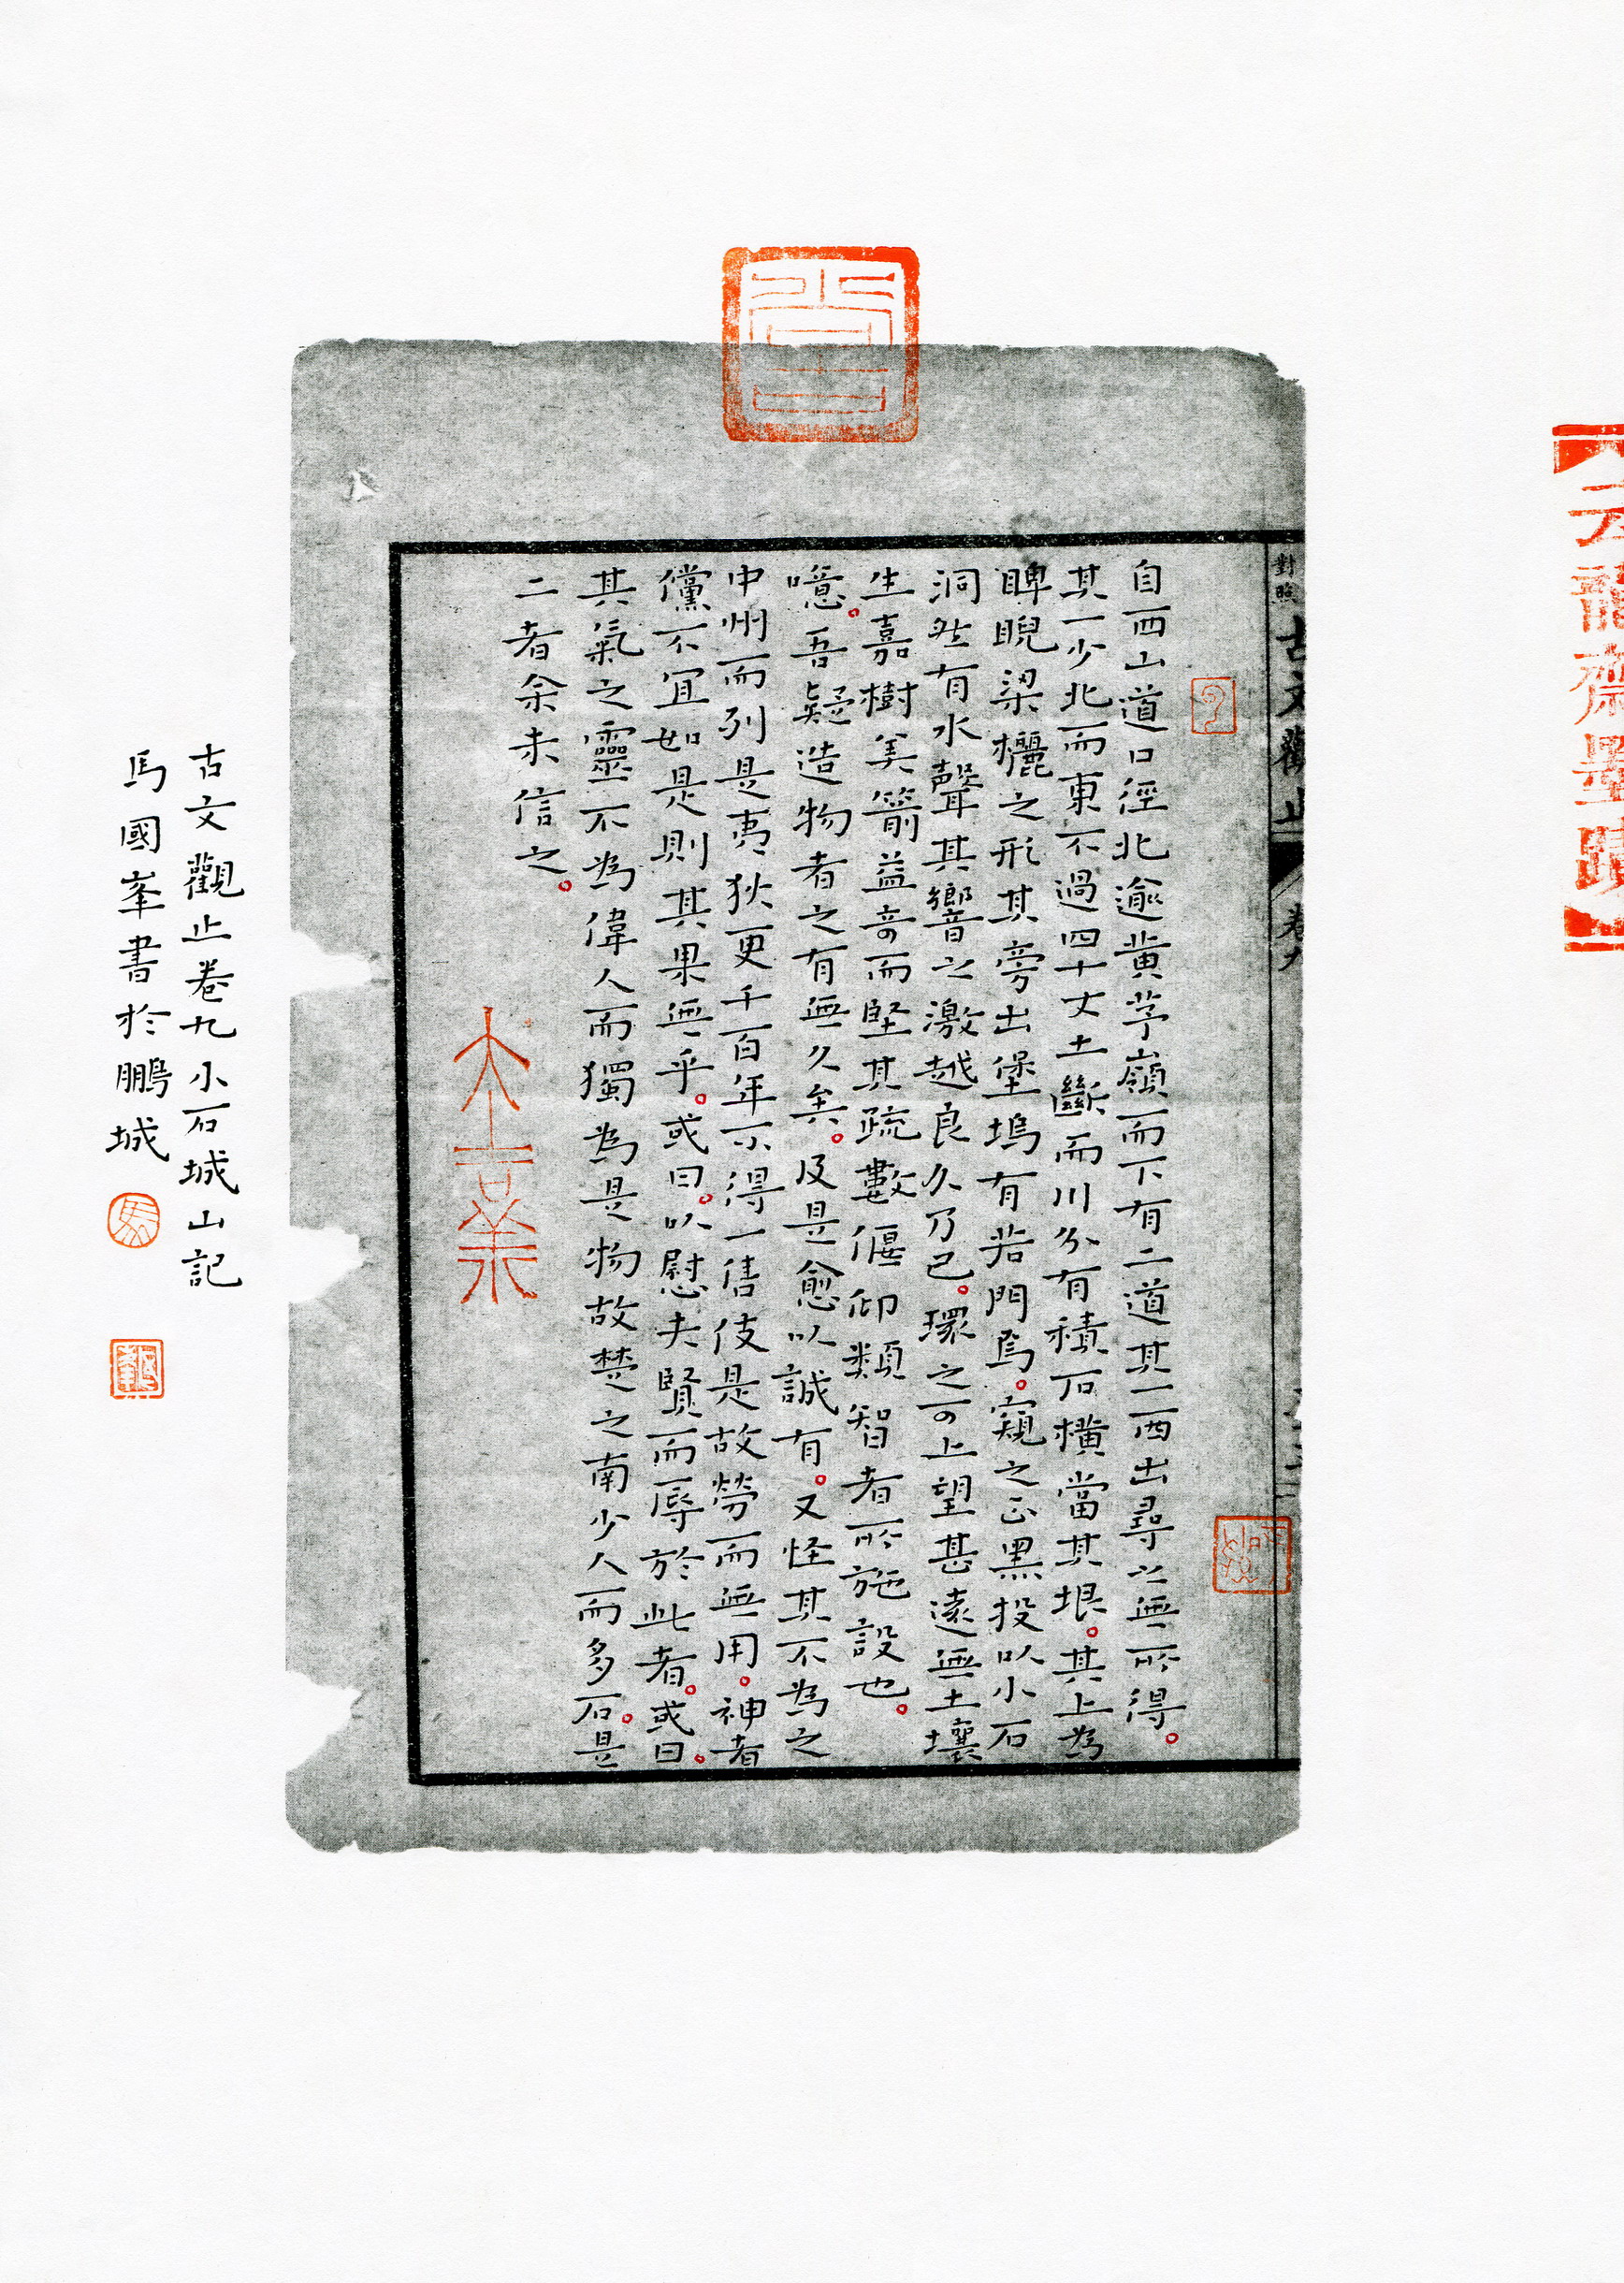 雲龍齋墨蹟
對照 古文觀止 卷九
自西山道口徑北逾黃茅嶺而下有二道其一西出尋之無所得。
其一少北而東不過四十丈土斷而川分有積石橫當其垠。其上為
睥睨梁欐之形其旁出堡塢有若門焉。窺之正黑投以小石
洞然有水聲其響之激越良久乃已。環之可上望甚遠無土壤
生嘉樹美箭益奇而堅其疏數偃仰類智者所施設也。
噫。吾疑造物者之有無久矣。及是愈以誠有。又怪其不為之
中州而列是夷狄更千百年不得一售伎是故勞而無用。神者
儻不宜如是則其果無乎。或曰。以慰夫賢而辱於此者。或曰。
其氣之靈不為偉人而獨為是物故楚之南少人而多石。是
二者余未信之。
古文觀止卷九小石城山記
馬國峯書於鵬城
馬